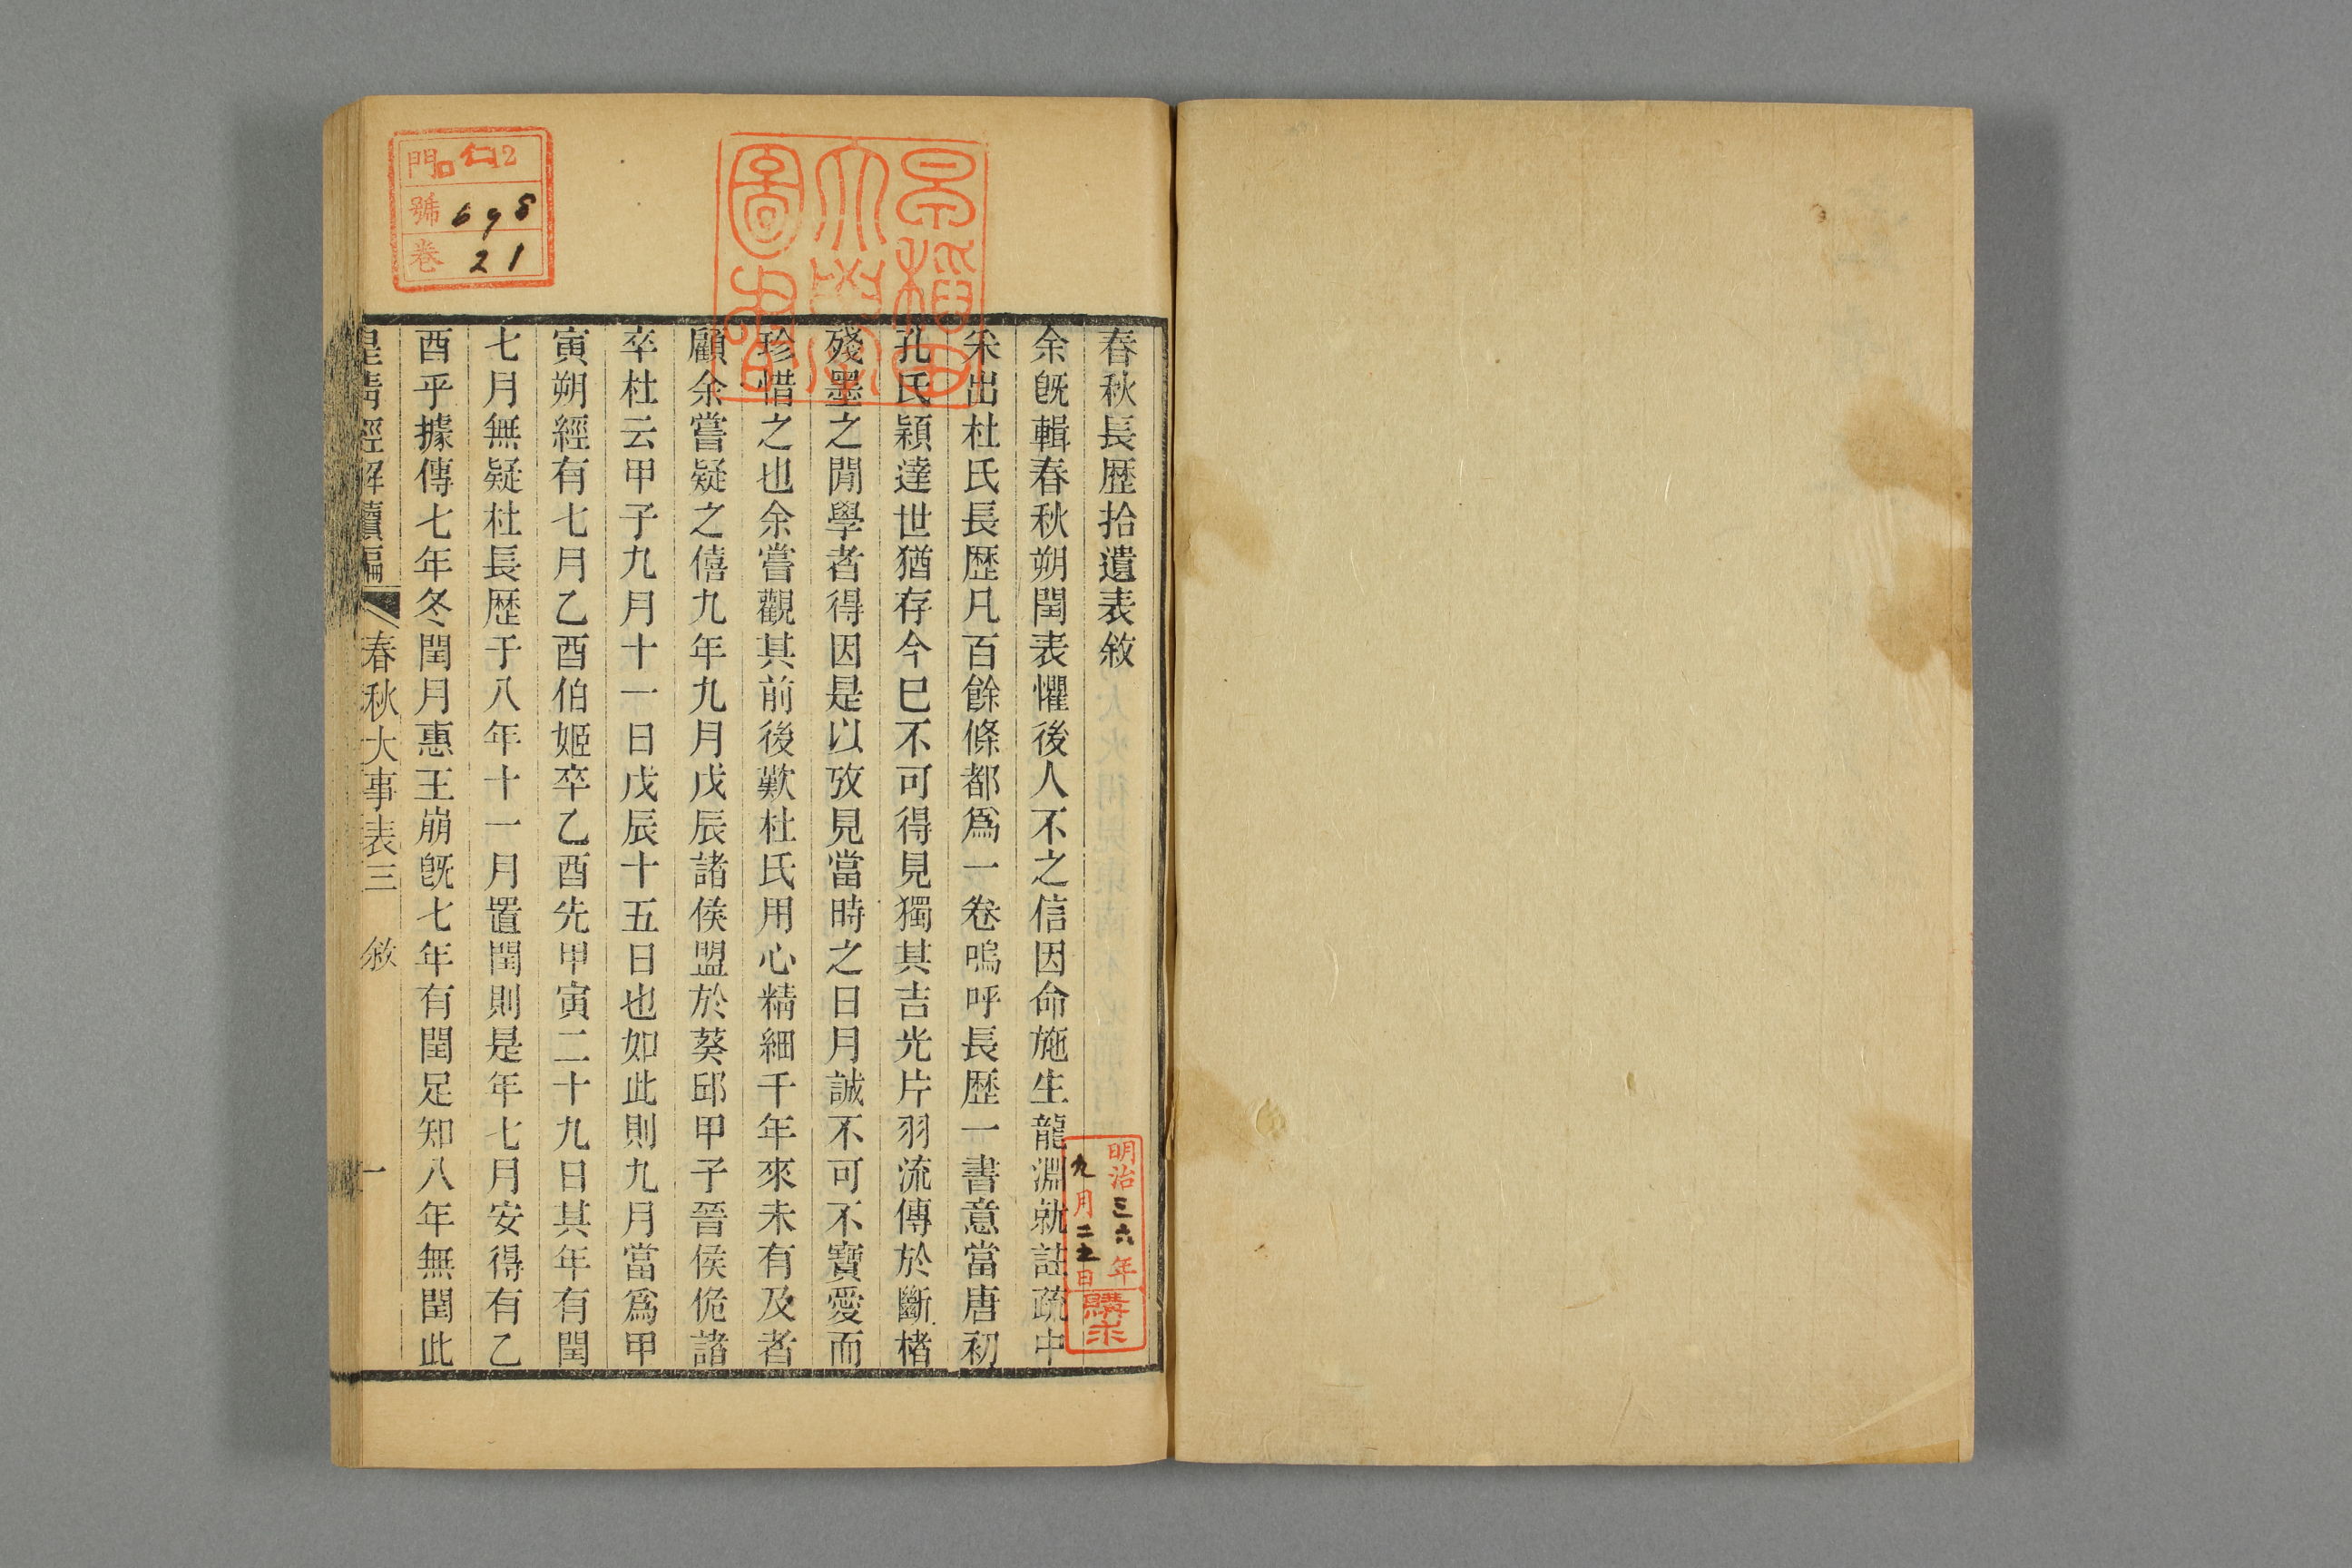 春秋長歴拾遺表敘
余旣輯春秋朔閏表懼後人不之信因命施生龍淵就註疏中
采出杜氏長歴凡百餘條都爲一卷嗚呼長歴一書意當唐初
孔氏穎達世猶存今巳不可得見獨其吉光片羽流傳於斷楮
殘墨之閒學者得因是以攷見當時之日月誠不可不寶愛而
珍惜之也余嘗觀其前後歎杜氏用心精細千年來未有及者
顧余嘗疑之僖九年九月戊辰諸侯盟於葵邱甲子晉侯佹諸
卒杜云甲子九月十一日戊辰十五日也如此則九月當爲甲
寅朔經有七月乙酉伯姬卒乙酉先甲寅二十九日其年有閏
七月無疑杜長歴于八年十一月置閏則是年七月安得有乙
酉乎據傳七年冬閏月惠王崩旣七年有閏足知八年無閏此
皇清經解續編
春秋大事表三
敘
一
早稻田
大學
圖書
門 ロ 12
號 698
卷 21
明治三六年
九月二 日
購求